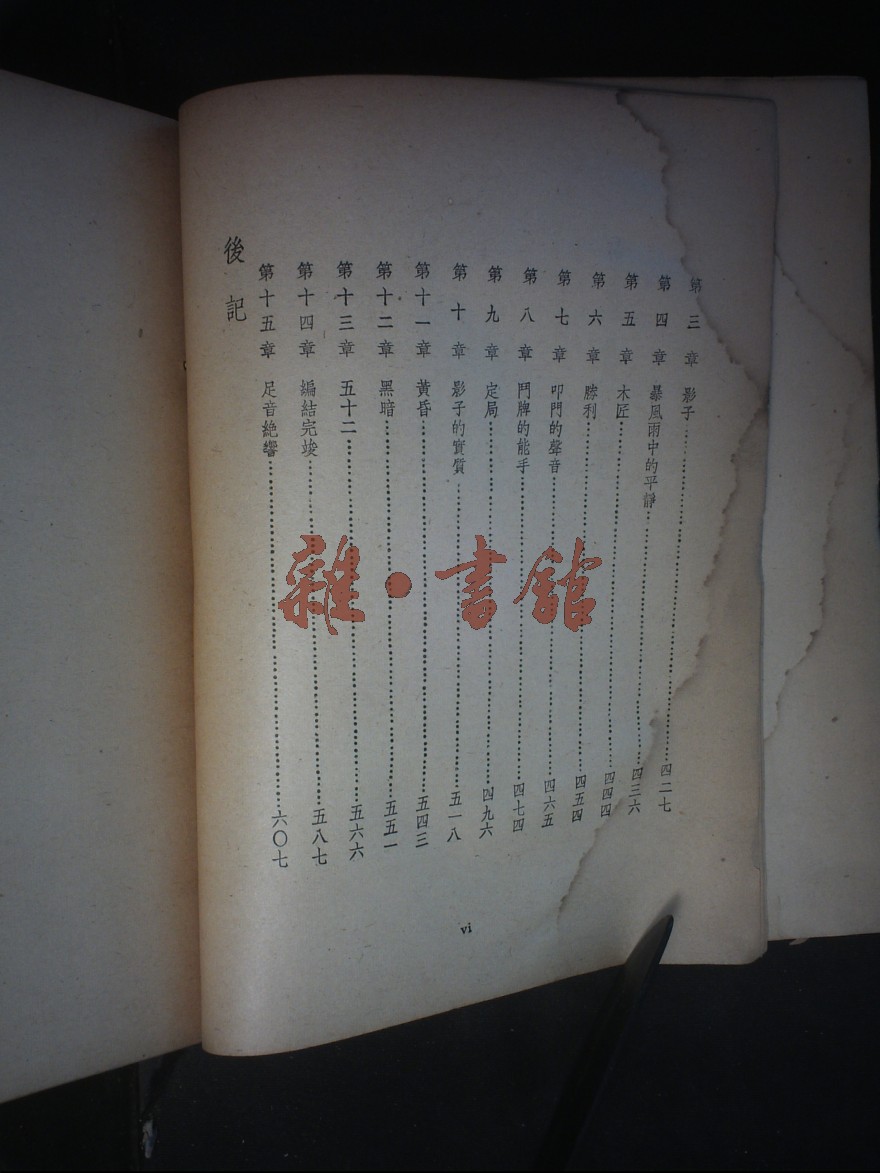 第三章 影子 四二七
第四章 暴風雨中的平靜 四三六
第五章 木匠 四四四
第六章 勝利 四五四
第七章 叩門的聲音 四六五
第八章 鬥牌的能手 四七四
第九章 定局 四九六
第十章 影子的實質 五一八
第十一章 黃昏 五四三
第十二章 黑暗 五五一
第十三章 五十二 五六六
第十四章 編結完竣 五八七
第十五章 足音絕響 六〇七
後記
vi
雜·書館